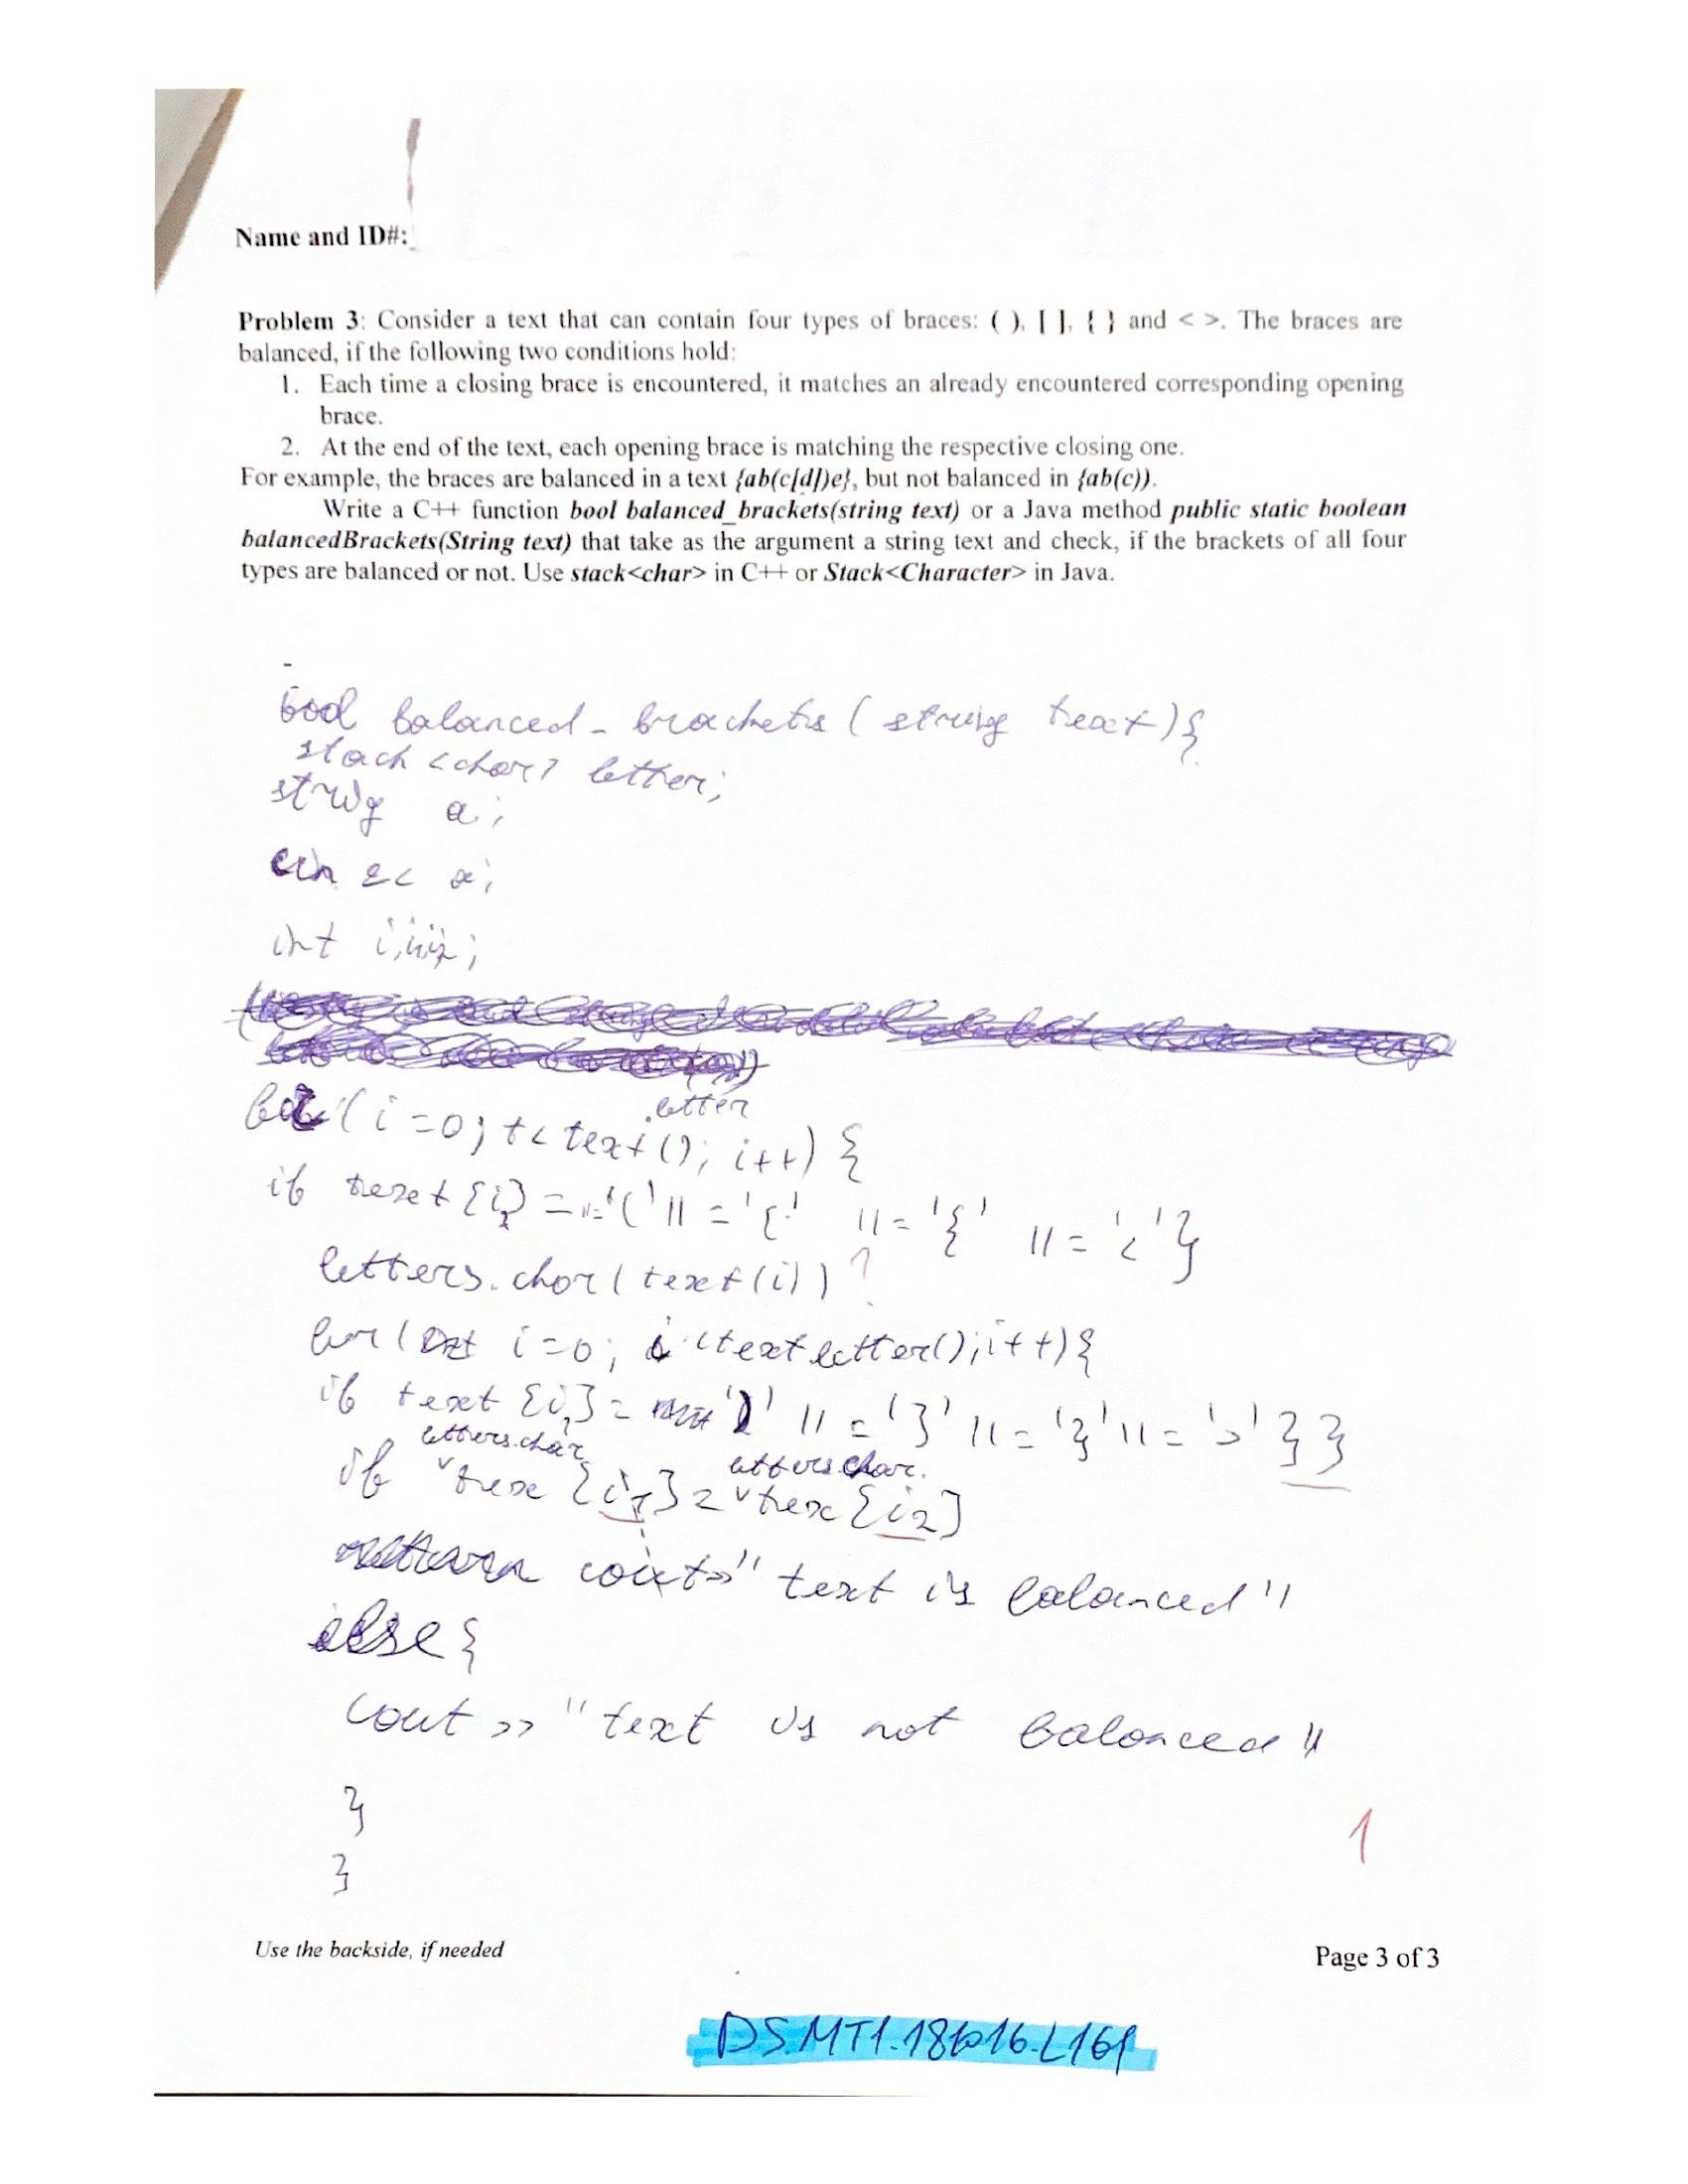 Name and ID#:
Problem 3: Consider a text that can contain four types of braces: ( ), [ ], { } and < >. The braces are
balanced, if the following two conditions hold:
1. Each time a closing brace is encountered, it matches an already encountered corresponding opening
brace.
2. At the end of the text, each opening brace is matching the respective closing one.
For example, the braces are balanced in a text {ab(c[d])e}, but not balanced in {ab(c)).
Write a C++ function bool balanced_brackets(string text) or a Java method public static boolean
balancedBrackets(String text) that take as the argument a string text and check, if the brackets of all four
types are balanced or not. Use stack<char> in C++ or Stack<Character> in Java.
bool balanced_brackets (string text){
stack <char> letter;
string a;
cin << a;
int i,
for (i=0; i< text.letter(); i++) {
if text {i} = '(' || = '[' || = '{' || = '<'}
letters.char(text(i)) ?
for(int i=0; i <text letter(); i++){
if text {i} = ')' || = ']' || = '}' || = '>' } }
letters.char letters char.
if tex {i1} = tex {i2]
cout>> "text is balanced"
else {
cout >> "text is not balanced"
}
}
1
Use the backside, if needed
Page 3 of 3